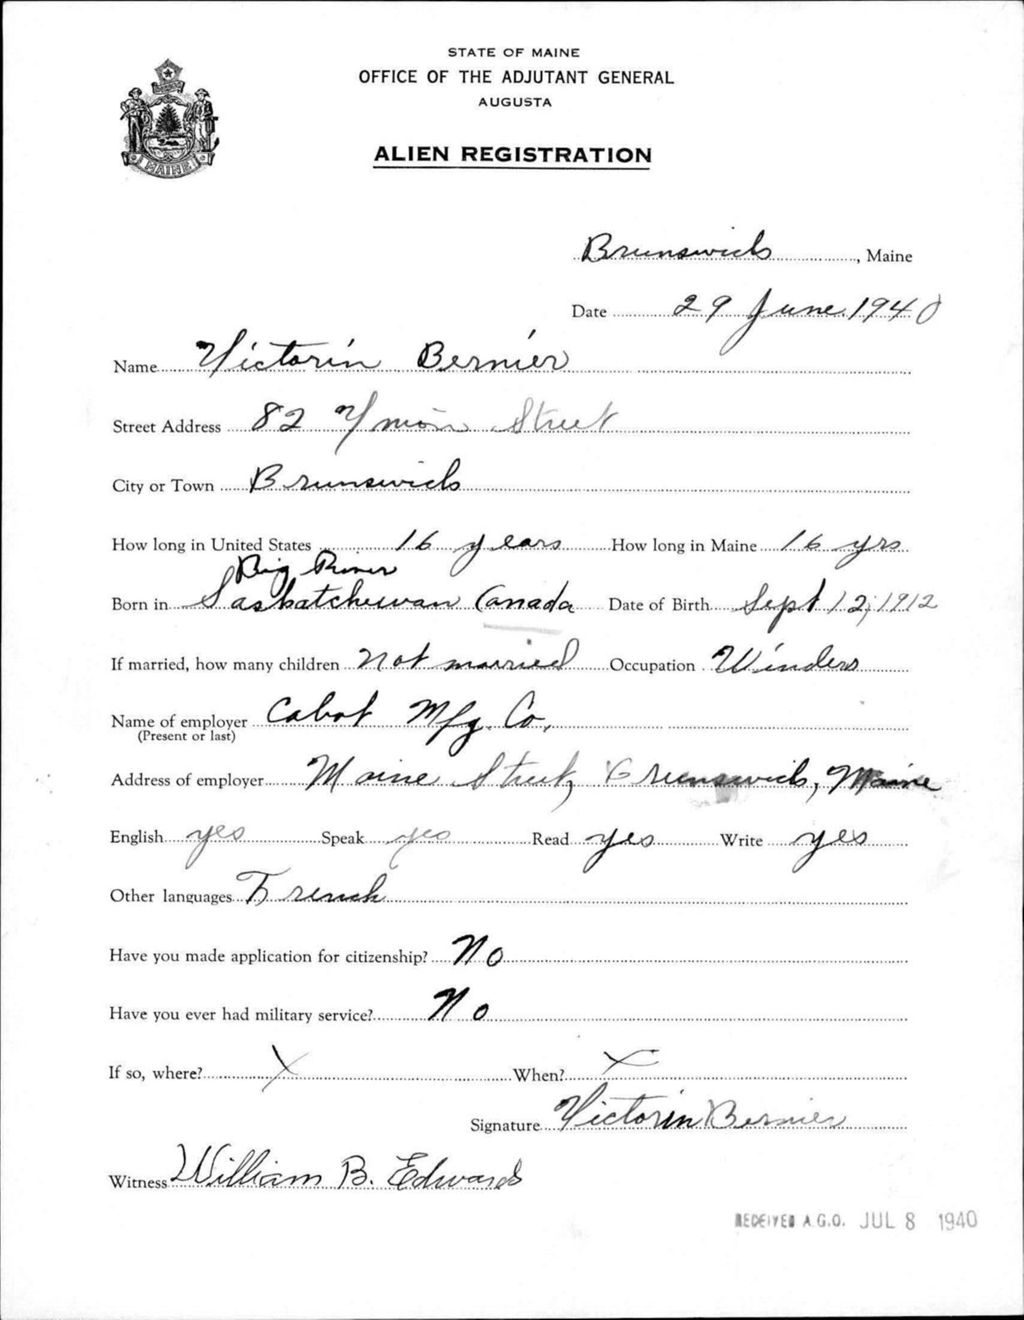 STATE OF MAINE
OFFICE OF THE ADJUTANT GENERAL
AUGUSTA
ALIEN REGISTRATION
MAINE
Brunswick, Maine
Date 29 June 1940
Name Victorin Bernier
Street Address 82 Union Street
City or Town Brunswick
How long in United States 16 years How long in Maine 16 yrs
Big River
Born in Saskatchewan Canada Date of Birth Sept 12, 1912
If married, how many children Not married Occupation Winder
Name of employer Cabot Mfg. Co.
(Present or last)
Address of employer Maine Street, Brunswick, Maine
English yes Speak yes Read yes Write yes
Other languages French
Have you made application for citizenship? No
Have you ever had military service? No
If so, where? X When? X
Signature Victorin Bernier
Witness William B. Edwards
RECEIVED A.G.O. JUL 8 1940